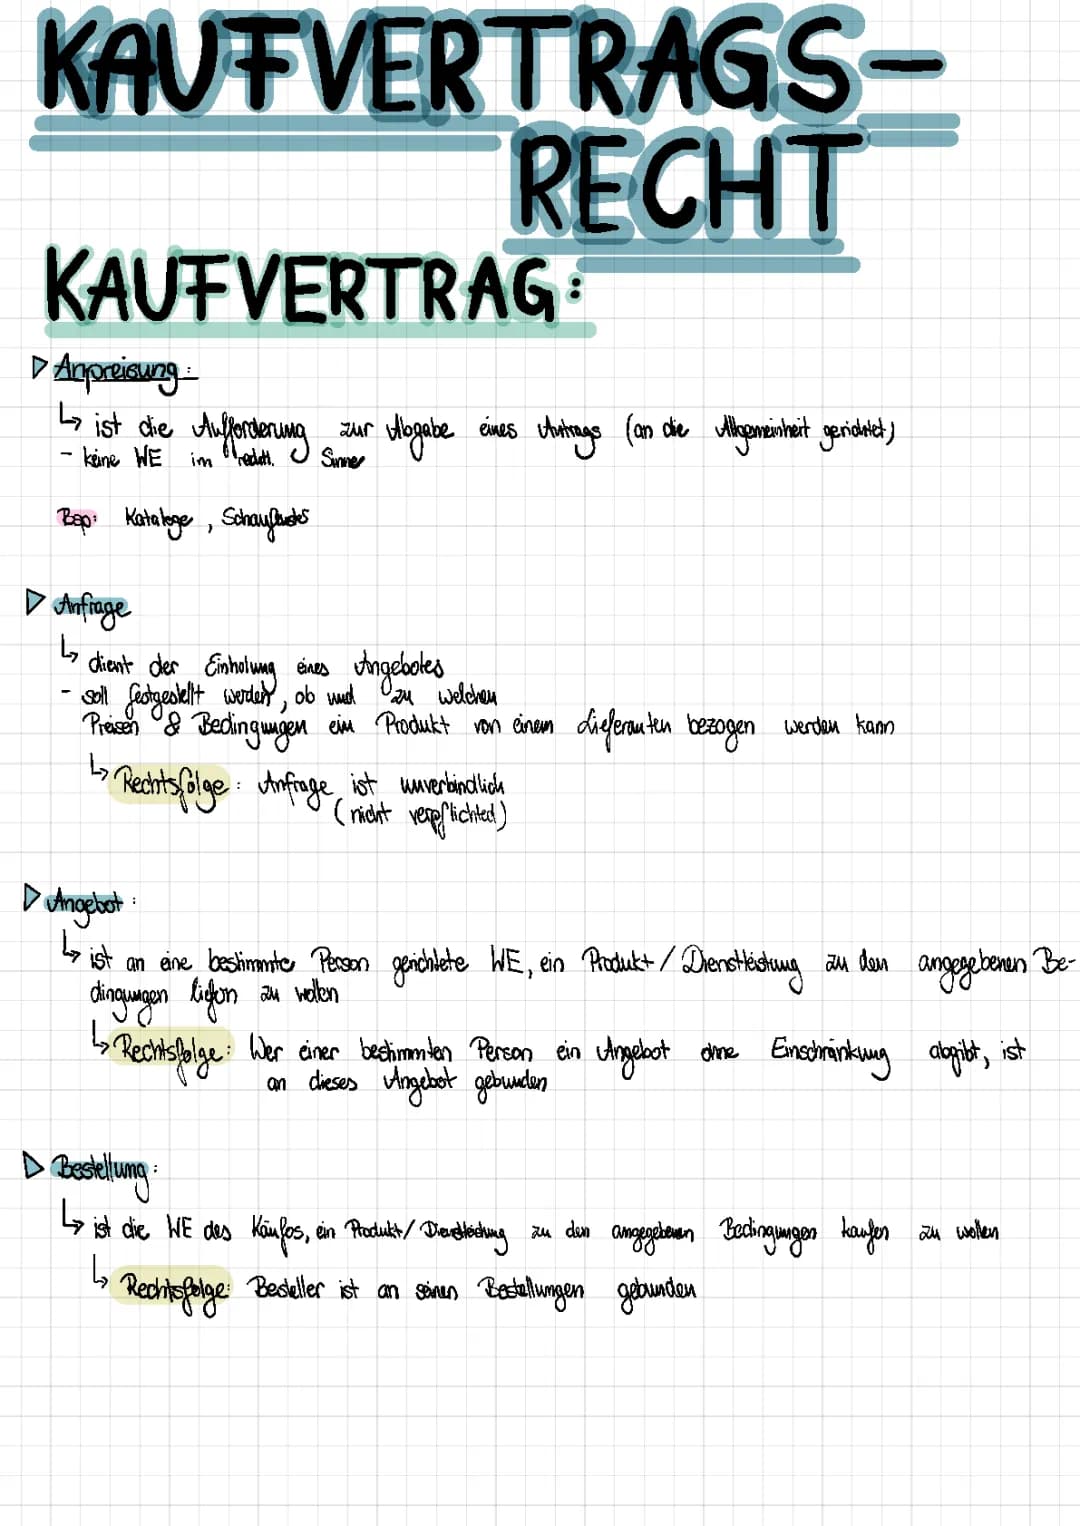 KAUFVERTRAGS-
RECHT
KAUFVERTRAG:
▷ Anpreisung:
↳ ist die Aufforderung zur Abgabe eines Antrags (an die Allgemeinheit gerichtet)
- keine WE im rechtl. Sinne
Bsp: Kataloge, Schaufenster
▷ Anfrage
↳ dient der Einholung eines Angebotes
- soll festgestellt werden, ob und zu welchen
Preisen & Bedingungen ein Produkt von einem Lieferanten bezogen werden kann
↳ Rechtsfolge: Anfrage ist unverbindlich
(nicht verpflichted)
▷ Angebot:
↳ ist an eine bestimmte Person gerichtete WE, ein Produkt / Dienstleistung zu den angegebenen Be-
dingungen liefern zu wollen
↳ Rechtsfolge: Wer einer bestimmten Person ein Angebot ohne Einschränkung abgibt, ist
an dieses Angebot gebunden
▷ Bestellung:
↳ ist die WE des Käufers, ein Produkt/ Dienstleistung zu den angegebenen Bedingungen kaufen zu wollen
↳ Rechtsfolge: Besteller ist an seinen Bestellungen gebunden